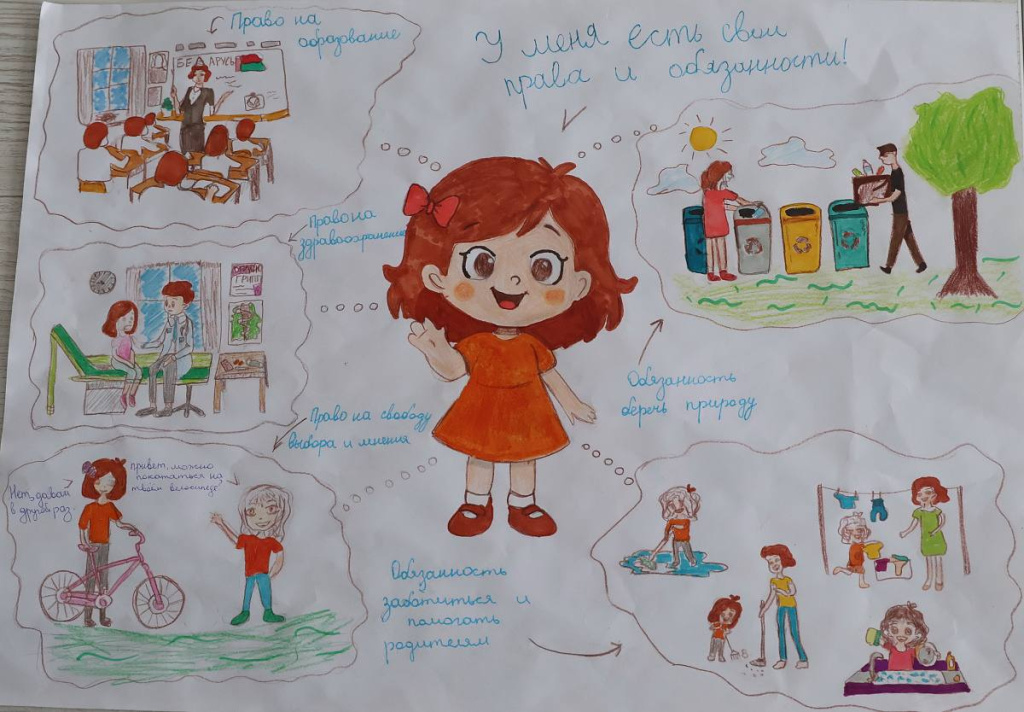 У меня есть свои
права и обязанности!
Право на
образование
БЕЛАРУСЬ
Право на
здравоохранение
ГРИПП
Право на свободу
выбора и мнения
привет, можно
покататься на
твоём велосипеде?
Нет, давай
в другой раз.
Обязанность
беречь природу
Обязанность
заботиться и
помогать
родителям